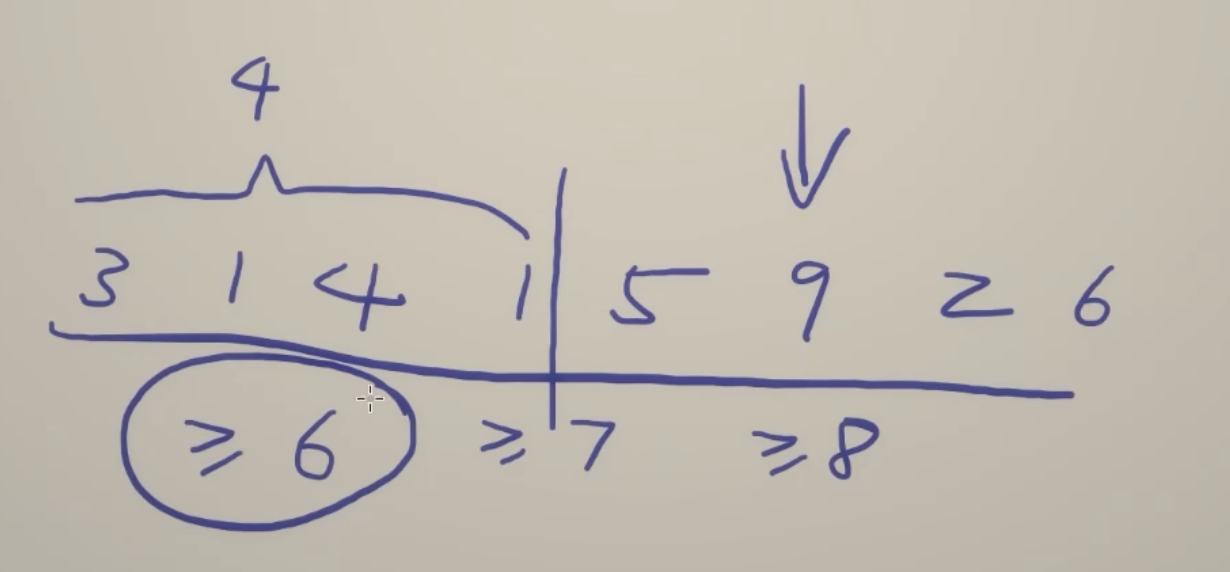 4
3 1 4 1 5 9 2 6
≥ 6 ≥ 7 ≥ 8